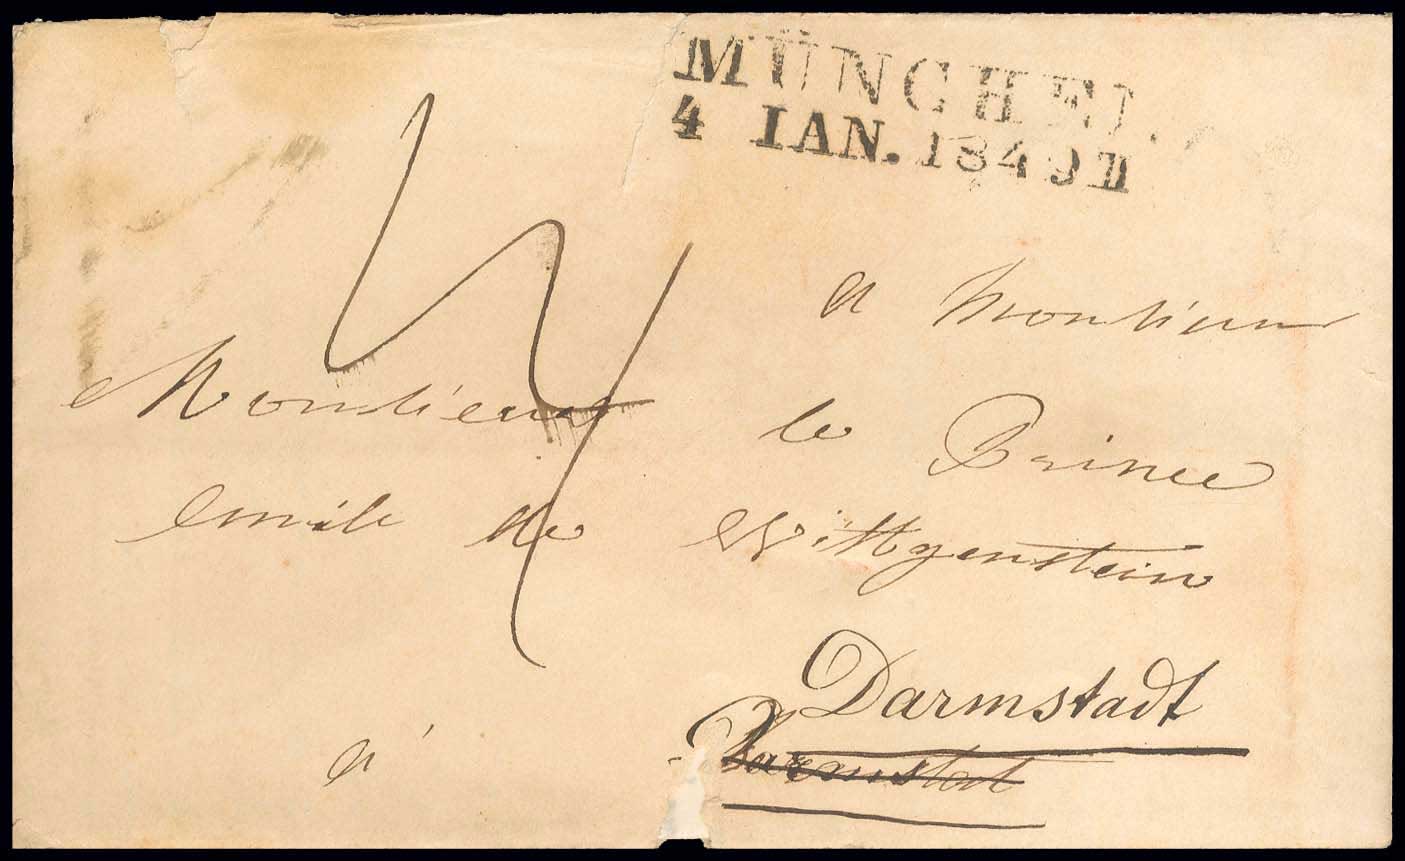 MÜNCHEN.
4 IAN. 1849 II
a Monsieur
Monsieur le Prince
emile de Wittgenstein
Darmstadt
a' Darmstadt